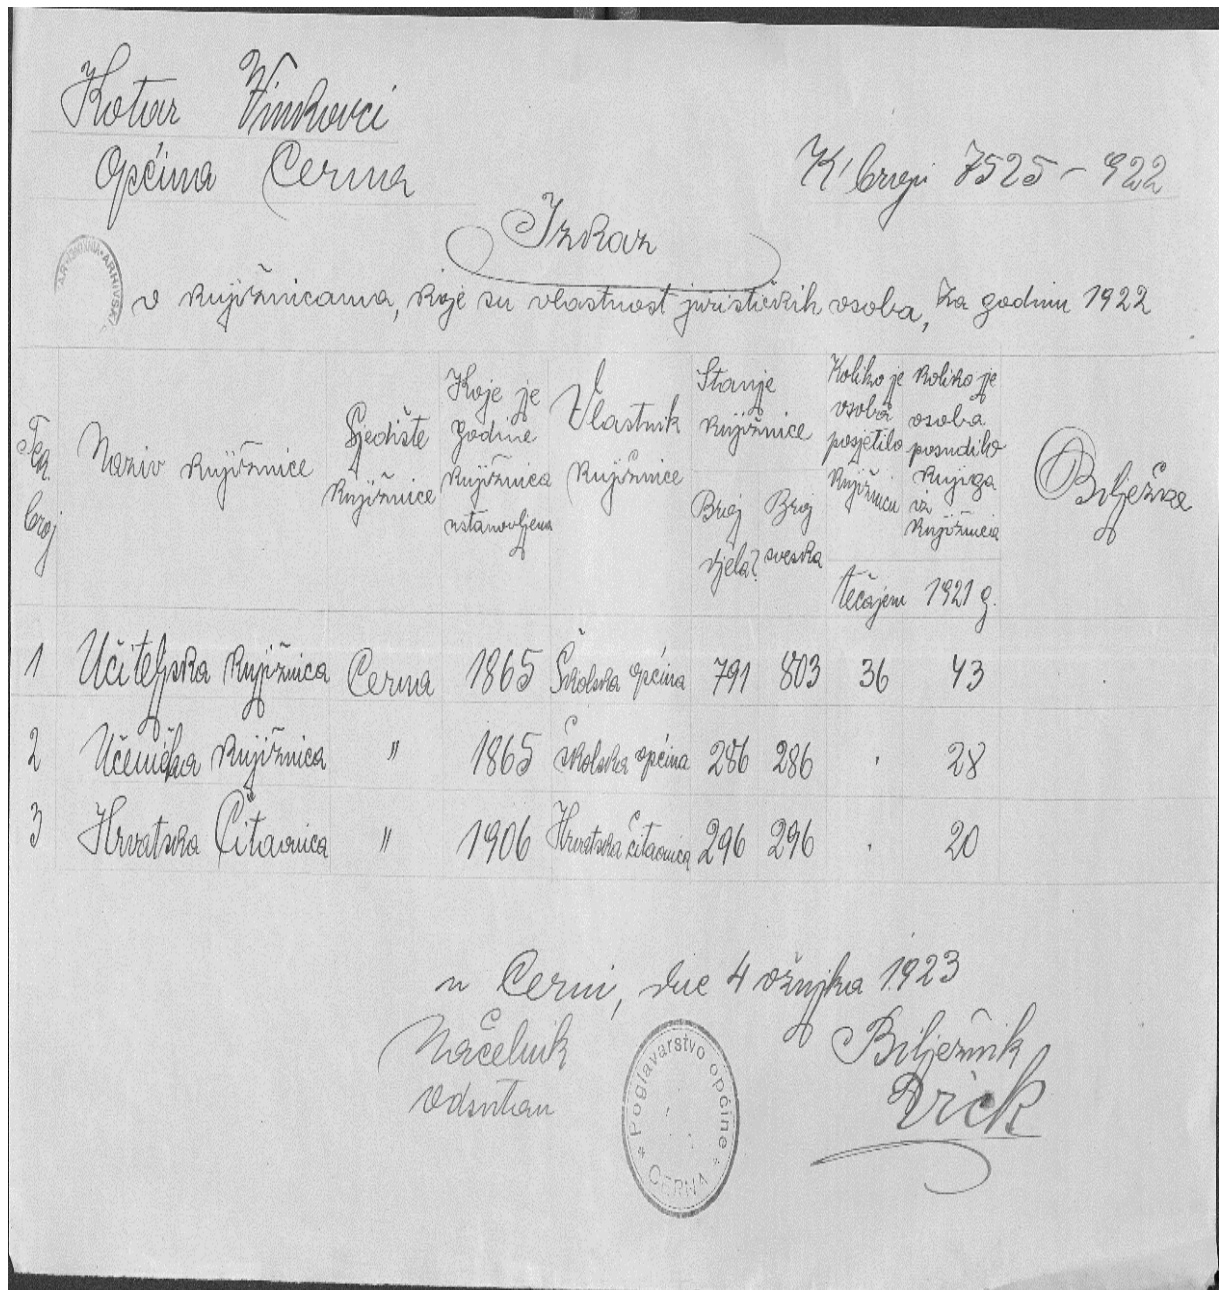 Kotar Vinkovci
Općina Cerna
K' broju 7525-922
Izkaz
o knjižnicama, koje su vlastnost jurističkih osoba, za godinu 1922
Tek. broj
Naziv knjižnice
Sjedište knjižnice
Koje je godine knjižnica ustanovljena
Vlastnik knjižnice
Stanje knjižnice
Broj djela
Broj svezka
Koliko je osoba posjetilo knjižnicu
Koliko je osoba posudilo knjiga iz knjižnica
tečajem 1921 g.
Bilježka
1 Učiteljska knjižnica Cerna 1865 Školska općina 791 803 36 43
2 Učenička knjižnica " 1865 Školska općina 286 286 . 28
3 Hrvatska Čitaonica " 1906 Hrvatska čitaonica 296 296 . 20
u Cerni, dne 4 ožujka 1923
Načelnik
odsutan
Bilježnik
Poglavarstvo općine
* CERNA *